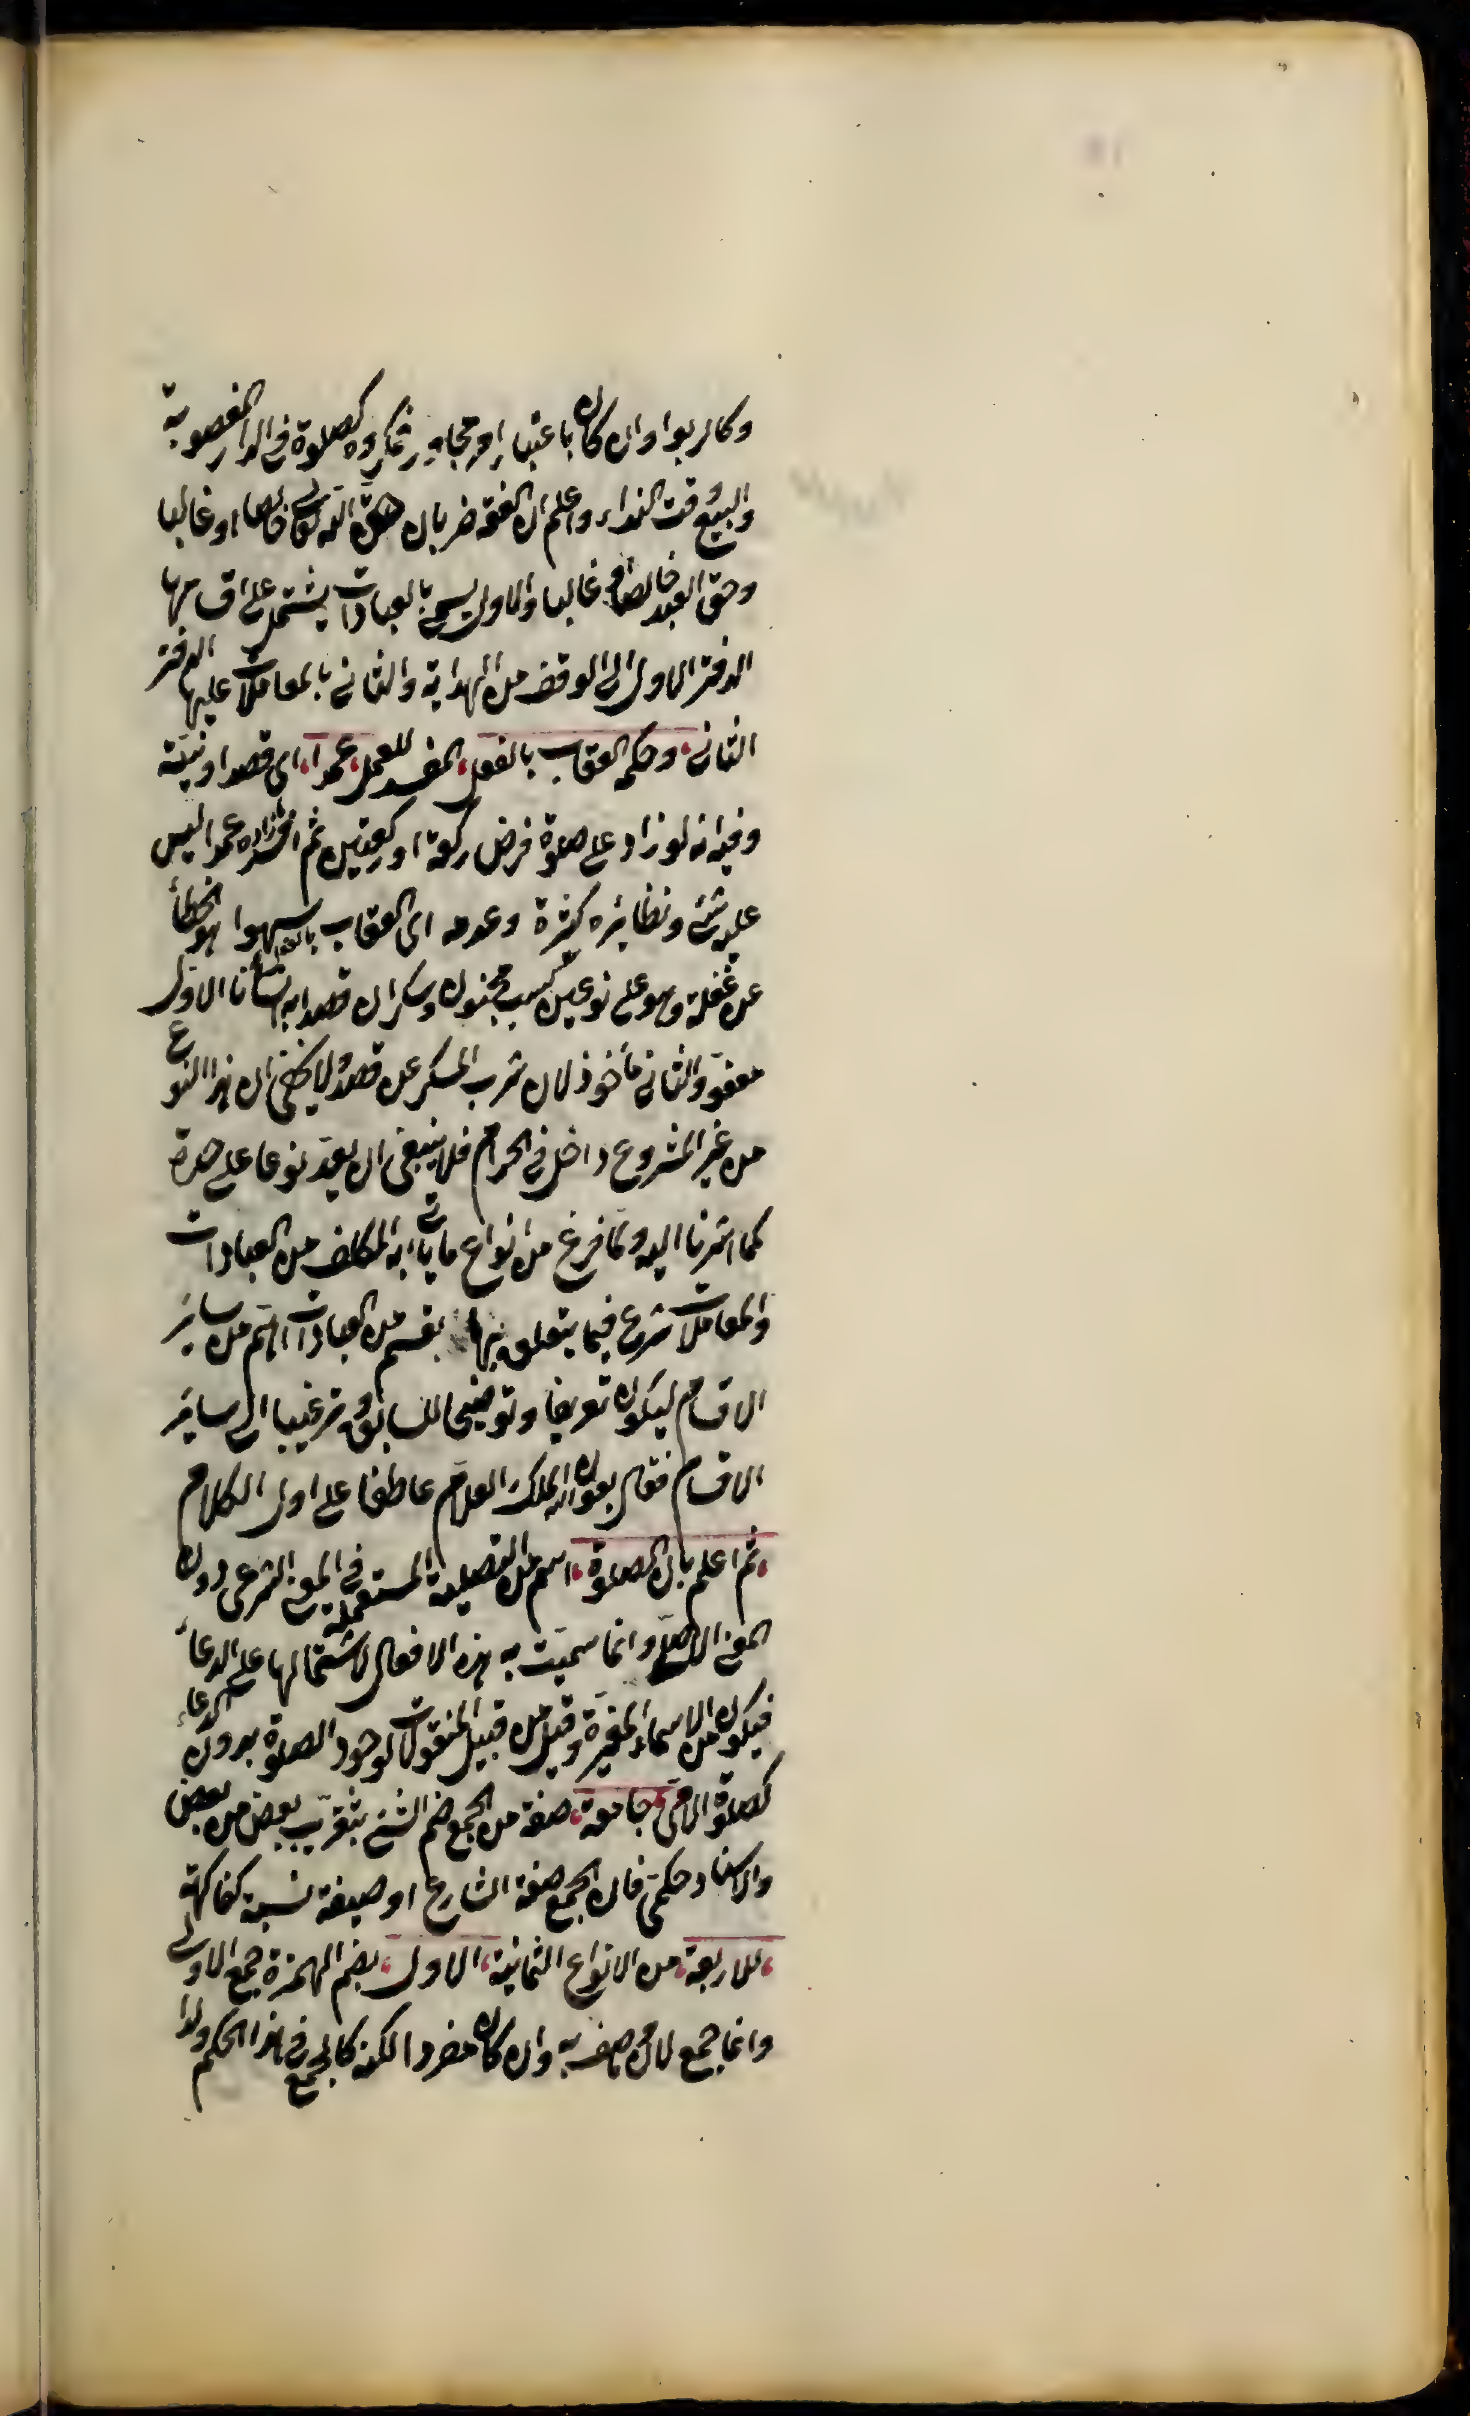 وكالربوا وان كان باعتبار امر مجاور فمكروه كالصلوة في الدار المغصوبة
والبيع وقت النداء واعلم ان الفقه ضربان حق الله تعالى خالصا او غالبا
وحق العبد خالصا او غالبا والاول يسمى بالعبادات يشتمل على اقسامها
الدفتر الاول الى الوقف من الهداية والثاني بالمعاملات عليها الدفتر
الثاني، وحكمه العقاب بالفعل، المفسد للعمل، عمدا، اى قصدا ونية
وفيه انه لو زاد على صلوة فرض ركعة او ركعتين ثم افسد عمدا ليس
عليه شئ ونظائره كثيرة وعدمه اى العقاب سهوا هو الخطأ
عن غفلة وهو على نوعين مجنون وسكران قصدا الاول
معفو والثاني مأخوذ لان شرب المسكر عن قصد ولا يخفى ان هذا النوع
من غير المشروع داخل في الحرام فلا ينبغى ان يعد نوعا على حدة
كما اشرنا اليه ولما فرغ من انواع ما يأتي به المكلف من العبادات
والمعاملات شرع فيما يتعلق بها بقسم من العبادات اهم من سائر
الاقسام ليكون تعريفا وتوضيحا للسابق وترغيبا الى سائر
الاقسام فقال بعون الله الملك العلام عاطفا على اول الكلام
، ثم اعلم بان الصلوة، اسم من التصلية المستعملة في المعنى الشرعى دون
المعنى الاصلى وانما سميت به هذه الافعال لاشتمالها على الدعاء
فيكون من الاسماء المغيرة وقيل من قبيل المنقولات لوجود الصلوة بدون الدعاء
كصلوة الامى، جامعة، صفة من الجمع ضم الشئ بتقريب بعض من بعض
والاسناد حكمى فان الجمع صفة الشارع او صيغة نسبة كفاكهة
، للاربعة، من الانواع الثمانية، الاول، بضم الهمزة جمع الاولى
وانما جمع لان موصوفه وان كان مفردا لكنه كالجمع في هذا الحكم ولذا